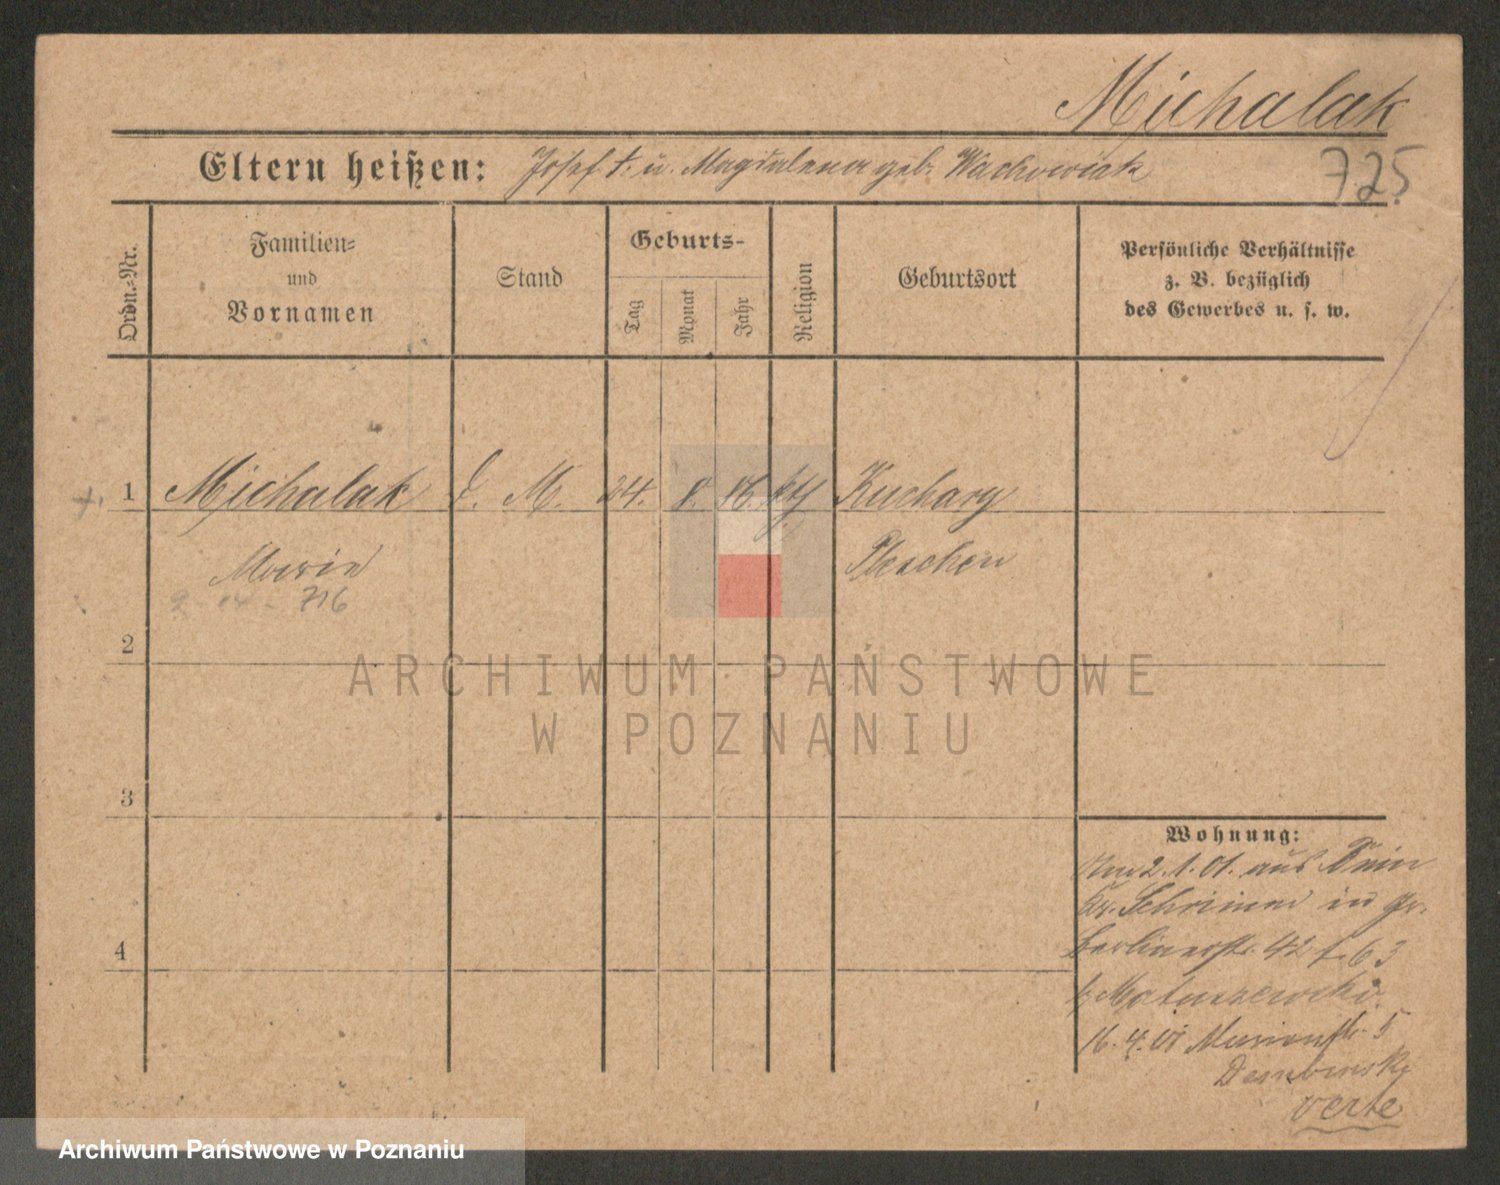 Michalak
Eltern heißen: Josef † u. Magdalena geb. Wachowiak
725
Ordn.-Nr.
Familien-
und
Vornamen
Stand
Geburts-
Tag
Monat
Jahr
Religion
Geburtsort
Persönliche Verhältnisse
z. B. bezüglich
des Gewerbes u. s. w.
1 Michalak d. M. 24. kth Kuchary
Marie Pleschen
716
2
3
4
Wohnung:
2.1.01. aus
Kr. Schrimm in Gr.
Berlinerstr. 42
b. Matuszewski.
16.4.01 5
verte
ARCHIWUM PAŃSTWOWE
W POZNANIU
Archiwum Państwowe w Poznaniu